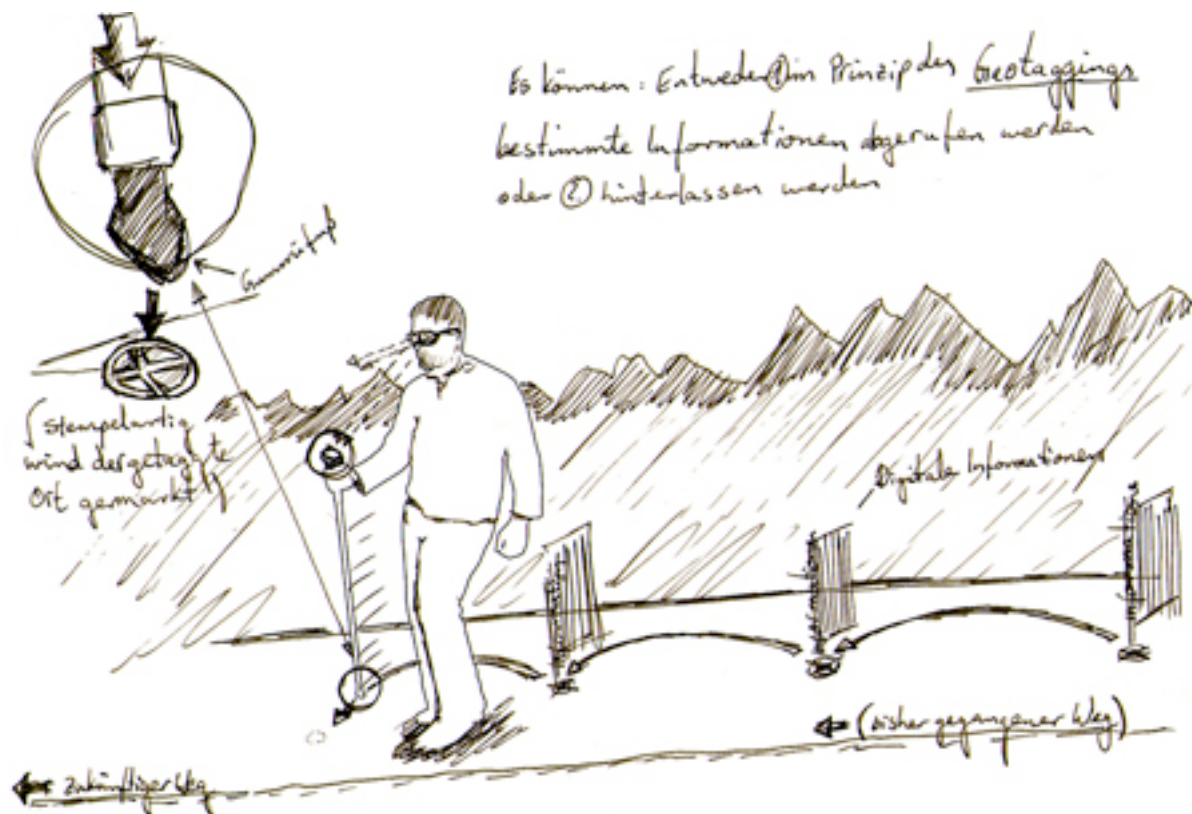 Es können: Entweder ① im Prinzip des Geotaggings
bestimmte Informationen abgerufen werden
oder ② hinterlassen werden
stempelartig
wird der getaggte
Ort gemarkt
Digitale Informationen
(bisher gegangener Weg)
Zukünftiger Weg